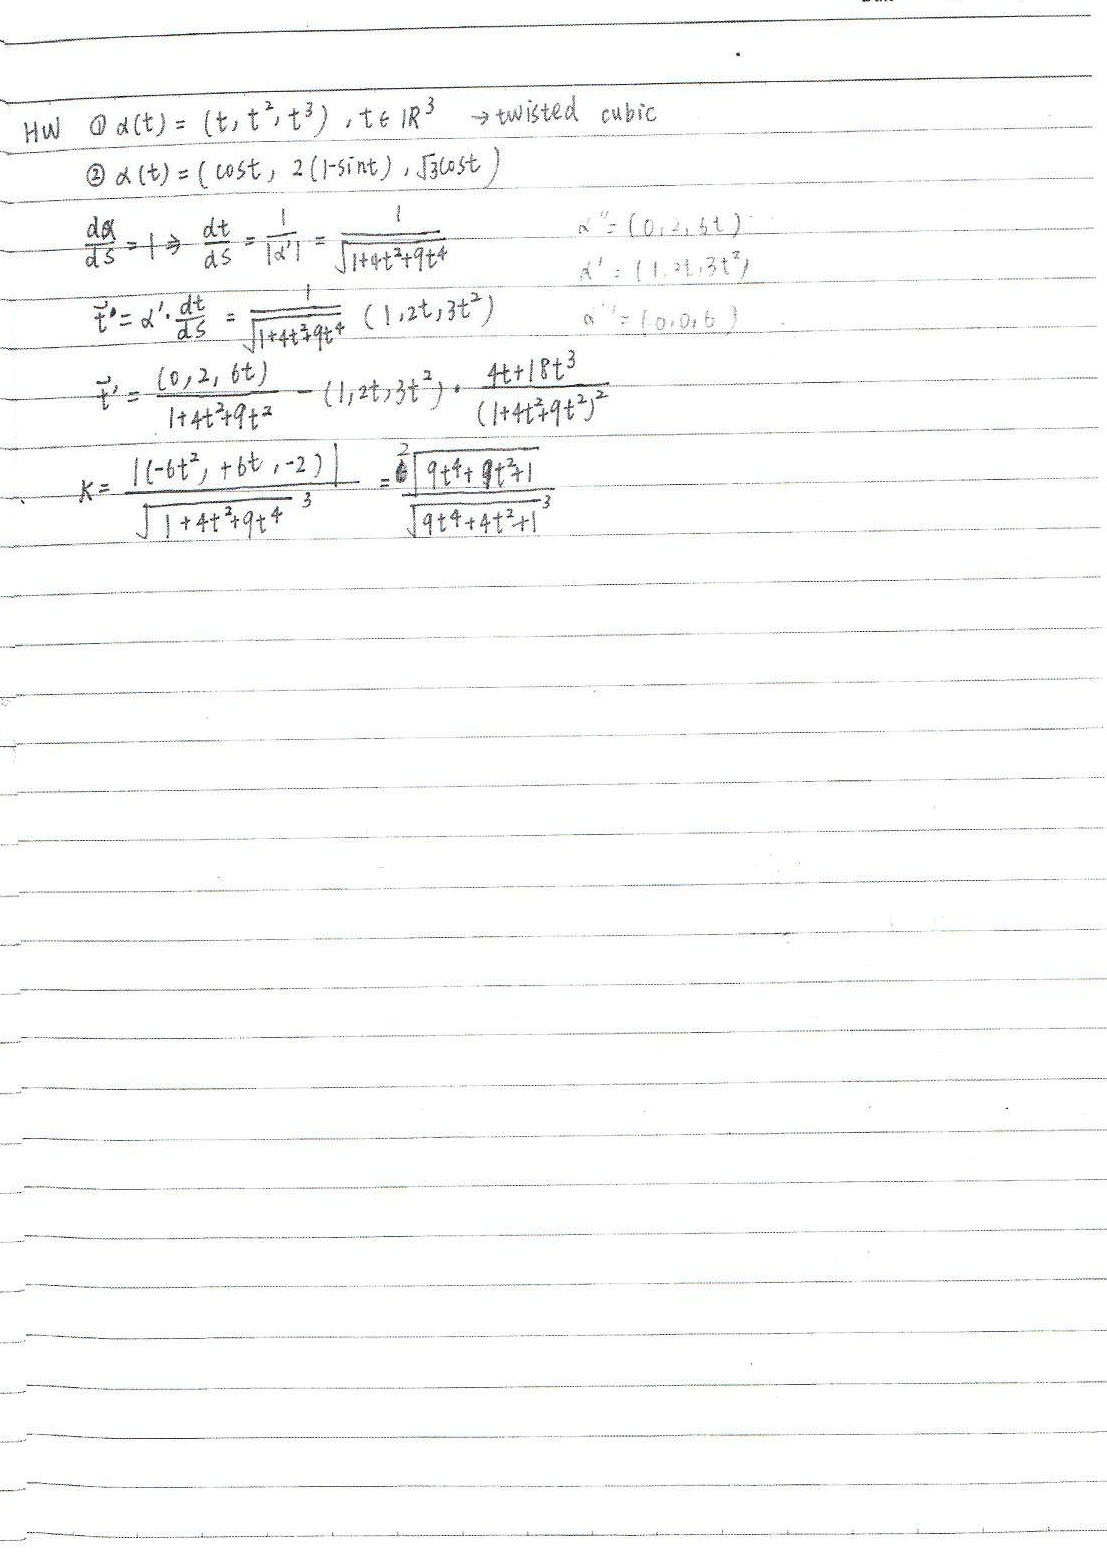 HW ① α(t) = (t, t², t³), t ∈ ℝ³ → twisted cubic
② α(t) = (cost, 2(1-sint), √3cost)
dα/ds = 1 ⇒ dt/ds = 1/|α'| = 1/√(1+4t²+9t⁴)
α'' = (0, 2, 6t)
α' = (1, 2t, 3t²)
t⃗ = α'·dt/ds = 1/√(1+4t²+9t⁴) (1, 2t, 3t²)
α''' = (0, 0, 6)
t⃗' = (0, 2, 6t)/(1+4t²+9t²) - (1, 2t, 3t²)·(4t+18t³)/(1+4t²+9t²)²
K = |(-6t², +6t, -2)|/√(1+4t²+9t⁴)³ = 2√(9t⁴+9t²+1)/√(9t⁴+4t²+1)³